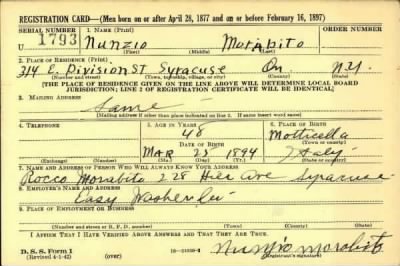 REGISTRATION CARD—(Men born on or after April 28, 1877 and on or before February 16, 1897)
SERIAL NUMBER 1. NAME (Print) ORDER NUMBER
U 1793 Nunzio Morabito
(First) (Middle) (Last)
2. PLACE OF RESIDENCE (Print)
314 E. Division St Syracuse On N.Y.
(Number and street) (Town, township, village, or city) (County) (State)
[THE PLACE OF RESIDENCE GIVEN ON THE LINE ABOVE WILL DETERMINE LOCAL BOARD
JURISDICTION; LINE 2 OF REGISTRATION CERTIFICATE WILL BE IDENTICAL]
3. MAILING ADDRESS
Same
[Mailing address if other than place indicated on line 2. If same insert word same]
4. TELEPHONE 5. AGE IN YEARS 6. PLACE OF BIRTH
48 Motticella
DATE OF BIRTH (Town or county)
Mar 25 1894 Italy
(Exchange) (Number) (Mo.) (Day) (Yr.) (State or country)
7. NAME AND ADDRESS OF PERSON WHO WILL ALWAYS KNOW YOUR ADDRESS
Rocco Morabito 228 Ave Syracuse
8. EMPLOYER'S NAME AND ADDRESS
Easy Washer
9. PLACE OF EMPLOYMENT OR BUSINESS
(Number and street or R. F. D. number) (Town) (County) (State)
I AFFIRM THAT I HAVE VERIFIED ABOVE ANSWERS AND THAT THEY ARE TRUE.
D. S. S. Form 1
(Revised 4-1-42) (over) Nunzio Morabito
(Registrant's signature)